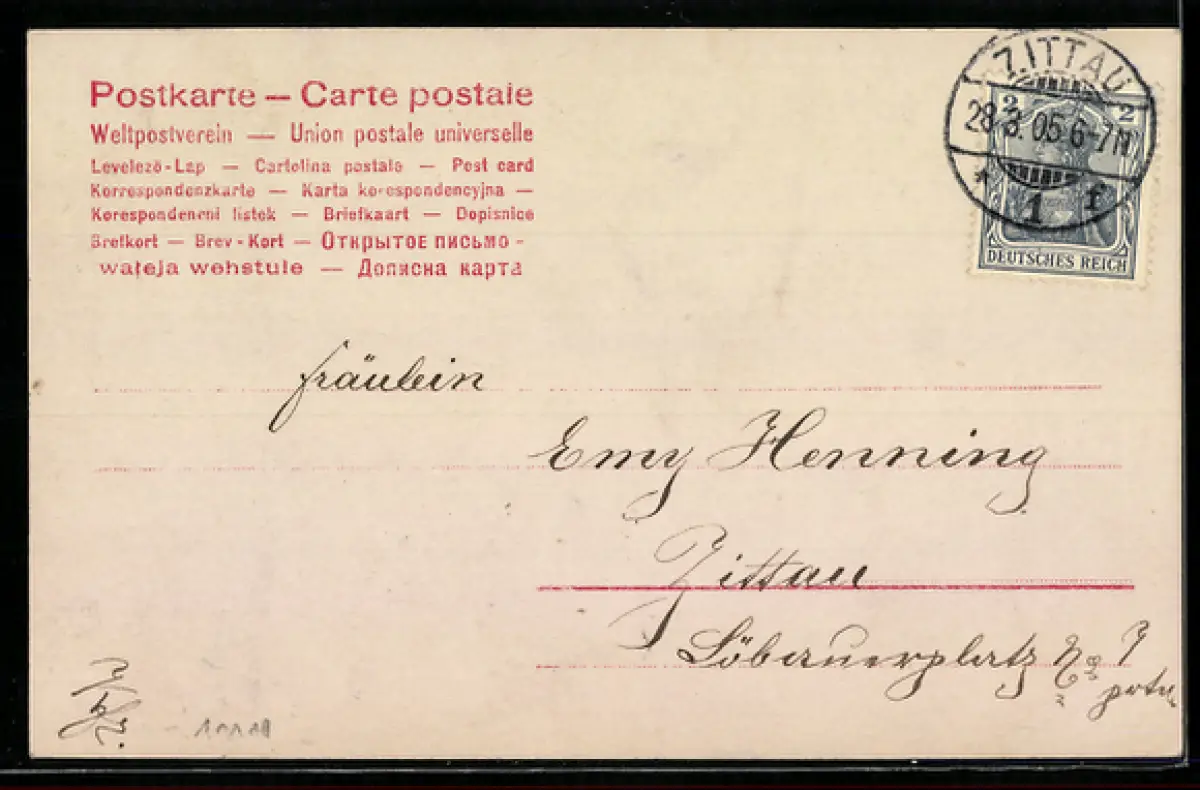 Postkarte — Carte postale
Weltpostverein — Union postale universelle
Levelező-Lap — Cartolina postale — Post card
Korrespondenzkarte — Karta korespondencyjna —
Korespondencni listek — Briefkaart — Dopisnice
Brefkort — Brev-Kort — Открытое письмо -
wateja wehstule — Дописна карта
ZITTAU
28.3.05.6-7N
* 1 f
2 2
DEUTSCHES REICH
Fräulein
Emy Henning
Zittau
Löbauerplatz No 7